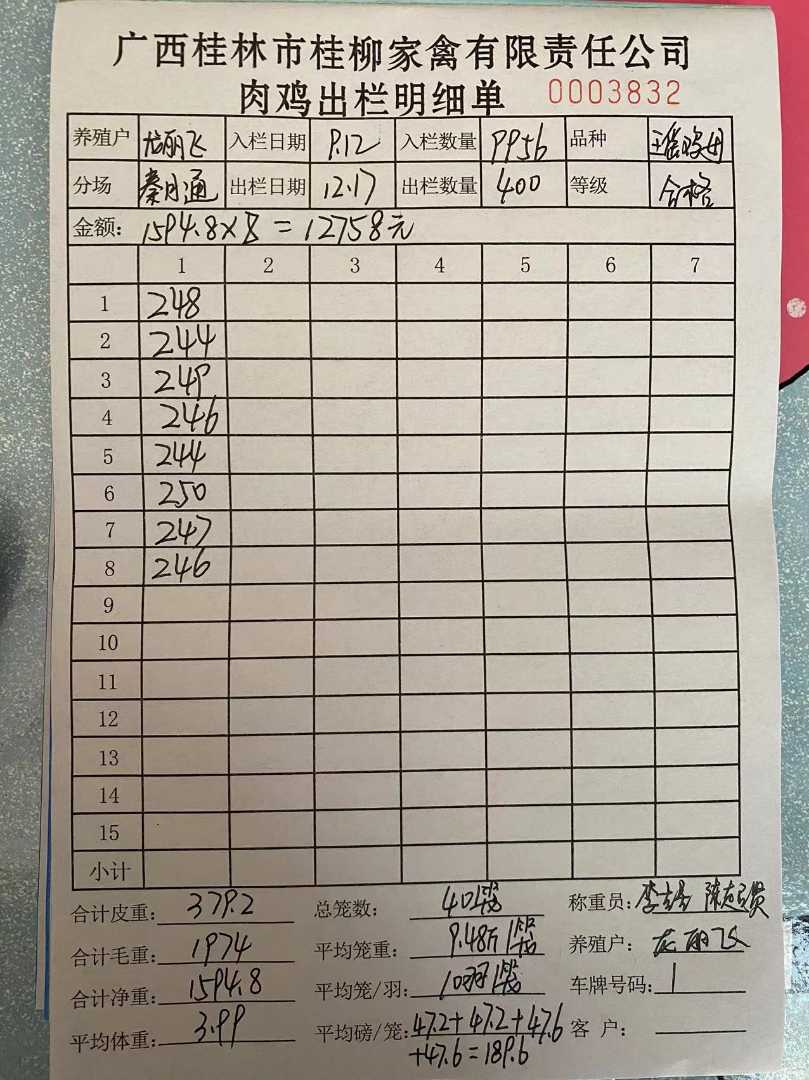 广西桂林市桂柳家禽有限责任公司
肉鸡出栏明细单 0003832
养殖户 龙丽飞 入栏日期 9.12 入栏数量 9956 品种
分场 秦月通 出栏日期 12.17 出栏数量 400 等级 合格
金额: 1594.8×8=12758元
1 2 3 4 5 6 7
1 248
2 244
3 249
4 246
5 244
6 250
7 247
8 246
9
10
11
12
13
14
15
小计
合计皮重: 379.2 总笼数: 40笼 称重员:
合计毛重: 1974 平均笼重: 9.48斤/笼 养殖户: 龙丽飞
合计净重: 1594.8 平均笼/羽: 10羽/笼 车牌号码: 1
平均体重: 3.99 平均磅/笼: 47.2+47.2+47.6 客户:
+47.6=189.6